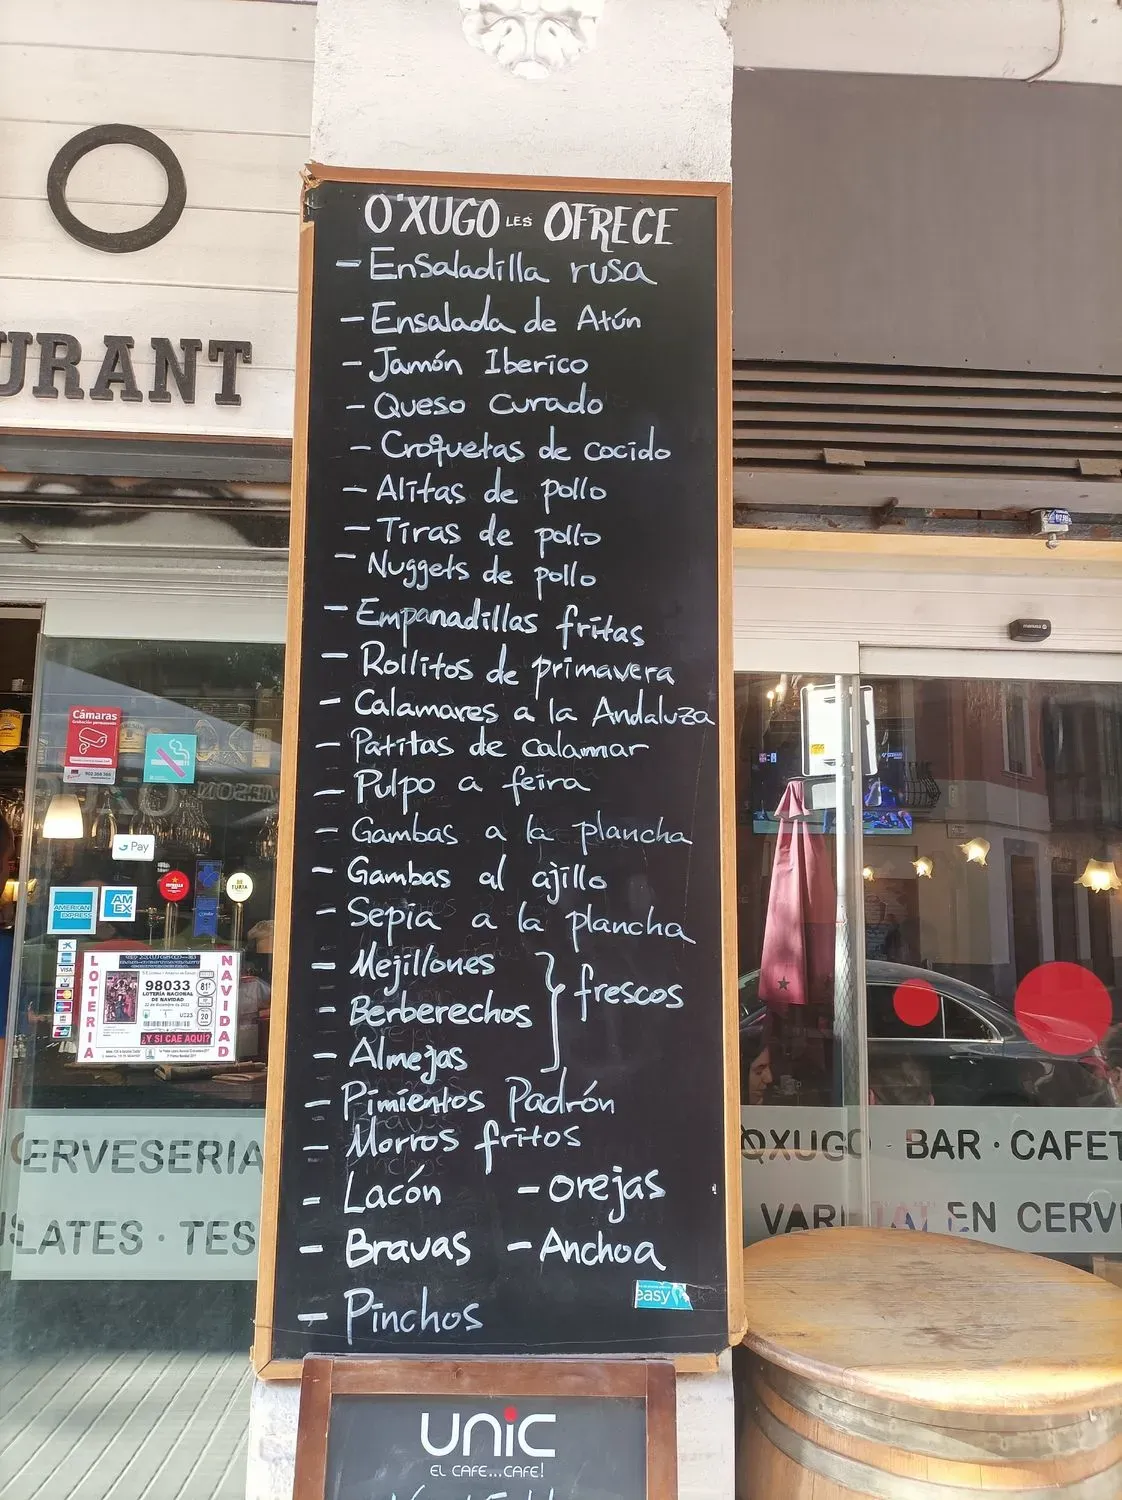 O
URANT
O'XUGO LES OFRECE
- Ensaladilla rusa
- Ensalada de Atún
- Jamón Iberico
- Queso Curado
- Croquetas de cocido
- Alitas de pollo
- Tiras de pollo
- Nuggets de pollo
- Empanadillas fritas
- Rollitos de primavera
- Calamares a la Andaluza
- Patitas de calamar
- Pulpo a feira
- Gambas a la plancha
- Gambas al ajillo
- Sepia a la plancha
- Mejillones
- Berberechos } frescos
- Almejas
- Pimientos Padrón
- Morros fritos
- Lacón - orejas
- Bravas - Anchoa
- Pinchos
easy
unic
EL CAFE...CAFE!
Cámaras
Grabación permanente
902 366 366
G Pay
AMERICAN EXPRESS
AM EX
TURIA
VISA
LOTERIA
NAVIDAD
98033
LOTERÍA NACIONAL
DE NAVIDAD
81ª
20
¿Y SI CAE AQUÍ?
CERVESERIA
LATES · TES
OXUGO · BAR · CAFET
VARIETAT EN CERV